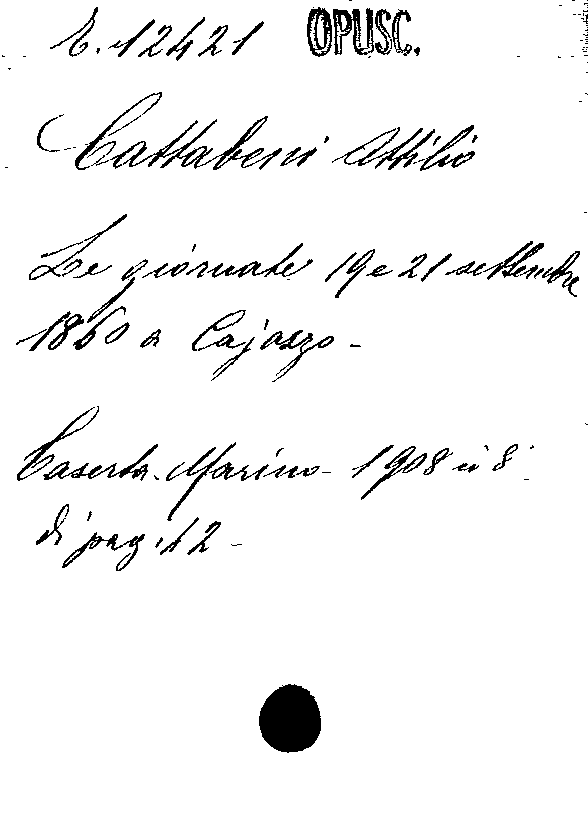 E. 12421 OPUSC.
Cattabeni Attilio
Le giornate 19 e 21 settembre
1860 a Cajazzo -
Caserta - Marino - 1908 in 8°
di pag. 12 -